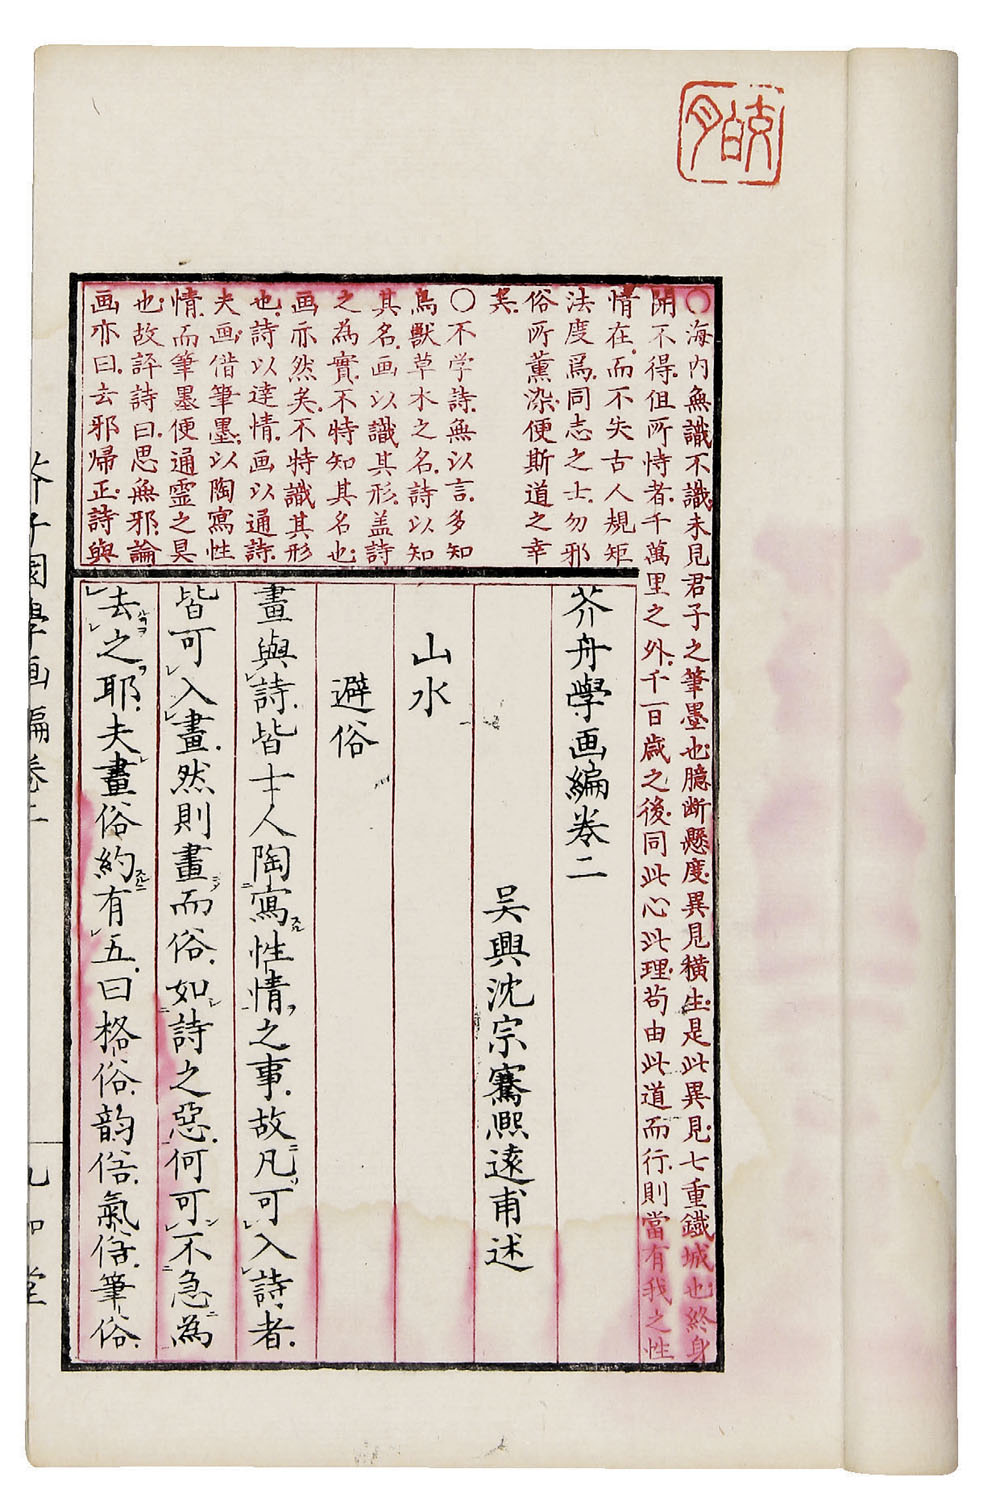 〇海内無識不識未見君子之筆墨也臆断懸度異見横生是此異見七重鐵城也終身
開不得但所恃者千萬里之外千百歳之後同此心此理苟由此道而行則當有我之性
情在而不失古人規矩
法度爲同志之士勿邪
俗所薰染便斯道之幸
矣
〇不学詩無以言多知
鳥獸草木之名詩以知
其名画以識其形盖詩
之為實不特知其名也
画亦然矣不特識其形
也詩以達情画以通詩
夫画借筆墨以陶寫性
情而筆墨便通霊之具
也故評詩曰思無邪論
画亦曰去邪帰正詩與
芥舟學画編巻二
吴興沈宗騫熙遠甫述
山水
避俗
畫與詩皆士人陶寫性情之事故凡可入詩者
皆可入畫然則畫而俗如詩之惡何可不急為
去之耶夫畫俗約有五曰格俗韵俗氣俗筆俗